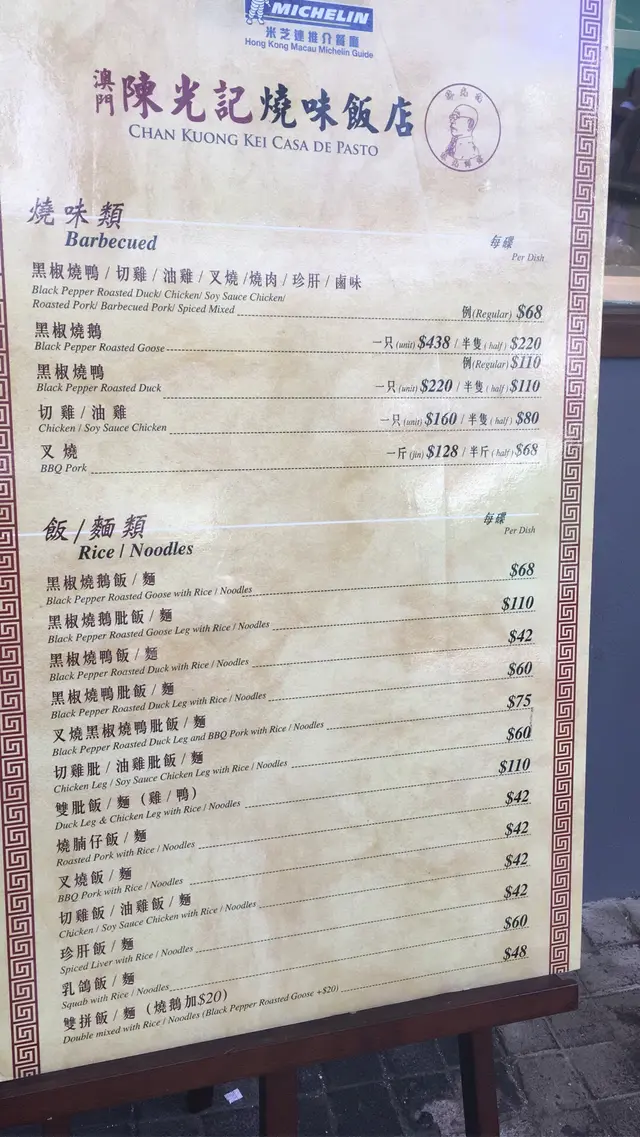 MICHELIN
米芝連推介餐廳
Hong Kong Macau Michelin Guide
澳門陳光記燒味飯店
CHAN KUONG KEI CASA DE PASTO
燒味類
Barbecued
每碟
Per Dish
黑椒燒鴨 / 切雞 / 油雞 / 叉燒 / 燒肉 / 珍肝 / 鹵味
Black Pepper Roasted Duck/ Chicken/ Soy Sauce Chicken/
Roasted Pork/ Barbecued Pork/ Spiced Mixed 例(Regular) $68
黑椒燒鵝
Black Pepper Roasted Goose 一只(unit) $438 / 半隻(half) $220
例(Regular) $110
黑椒燒鴨
Black Pepper Roasted Duck 一只(unit) $220 / 半隻(half) $110
切雞 / 油雞
Chicken / Soy Sauce Chicken 一只(unit) $160 / 半隻(half) $80
叉燒
BBQ Pork 一斤(jin) $128 / 半斤(half) $68
飯/麵類
Rice / Noodles
每碟
Per Dish
黑椒燒鵝飯 / 麵
Black Pepper Roasted Goose with Rice / Noodles $68
黑椒燒鵝肶飯 / 麵
Black Pepper Roasted Goose Leg with Rice / Noodles $110
黑椒燒鴨飯 / 麵
Black Pepper Roasted Duck with Rice / Noodles $42
黑椒燒鴨肶飯 / 麵
Black Pepper Roasted Duck Leg with Rice / Noodles $60
叉燒黑椒燒鴨肶飯 / 麵
Black Pepper Roasted Duck Leg and BBQ Pork with Rice / Noodles $75
切雞肶 / 油雞肶飯 / 麵
Chicken Leg / Soy Sauce Chicken Leg with Rice / Noodles $60
雙肶飯 / 麵 (雞 / 鴨)
Duck Leg & Chicken Leg with Rice / Noodles $110
燒腩仔飯 / 麵
Roasted Pork with Rice / Noodles $42
叉燒飯 / 麵
BBQ Pork with Rice / Noodles $42
切雞飯 / 油雞飯 / 麵
Chicken / Soy Sauce Chicken with Rice / Noodles $42
珍肝飯 / 麵
Spiced Liver with Rice / Noodles $42
乳鴿飯 / 麵
Squab with Rice / Noodles $60
雙拼飯 / 麵 (燒鵝加$20)
Double mixed with Rice / Noodles (Black Pepper Roasted Goose +$20) $48